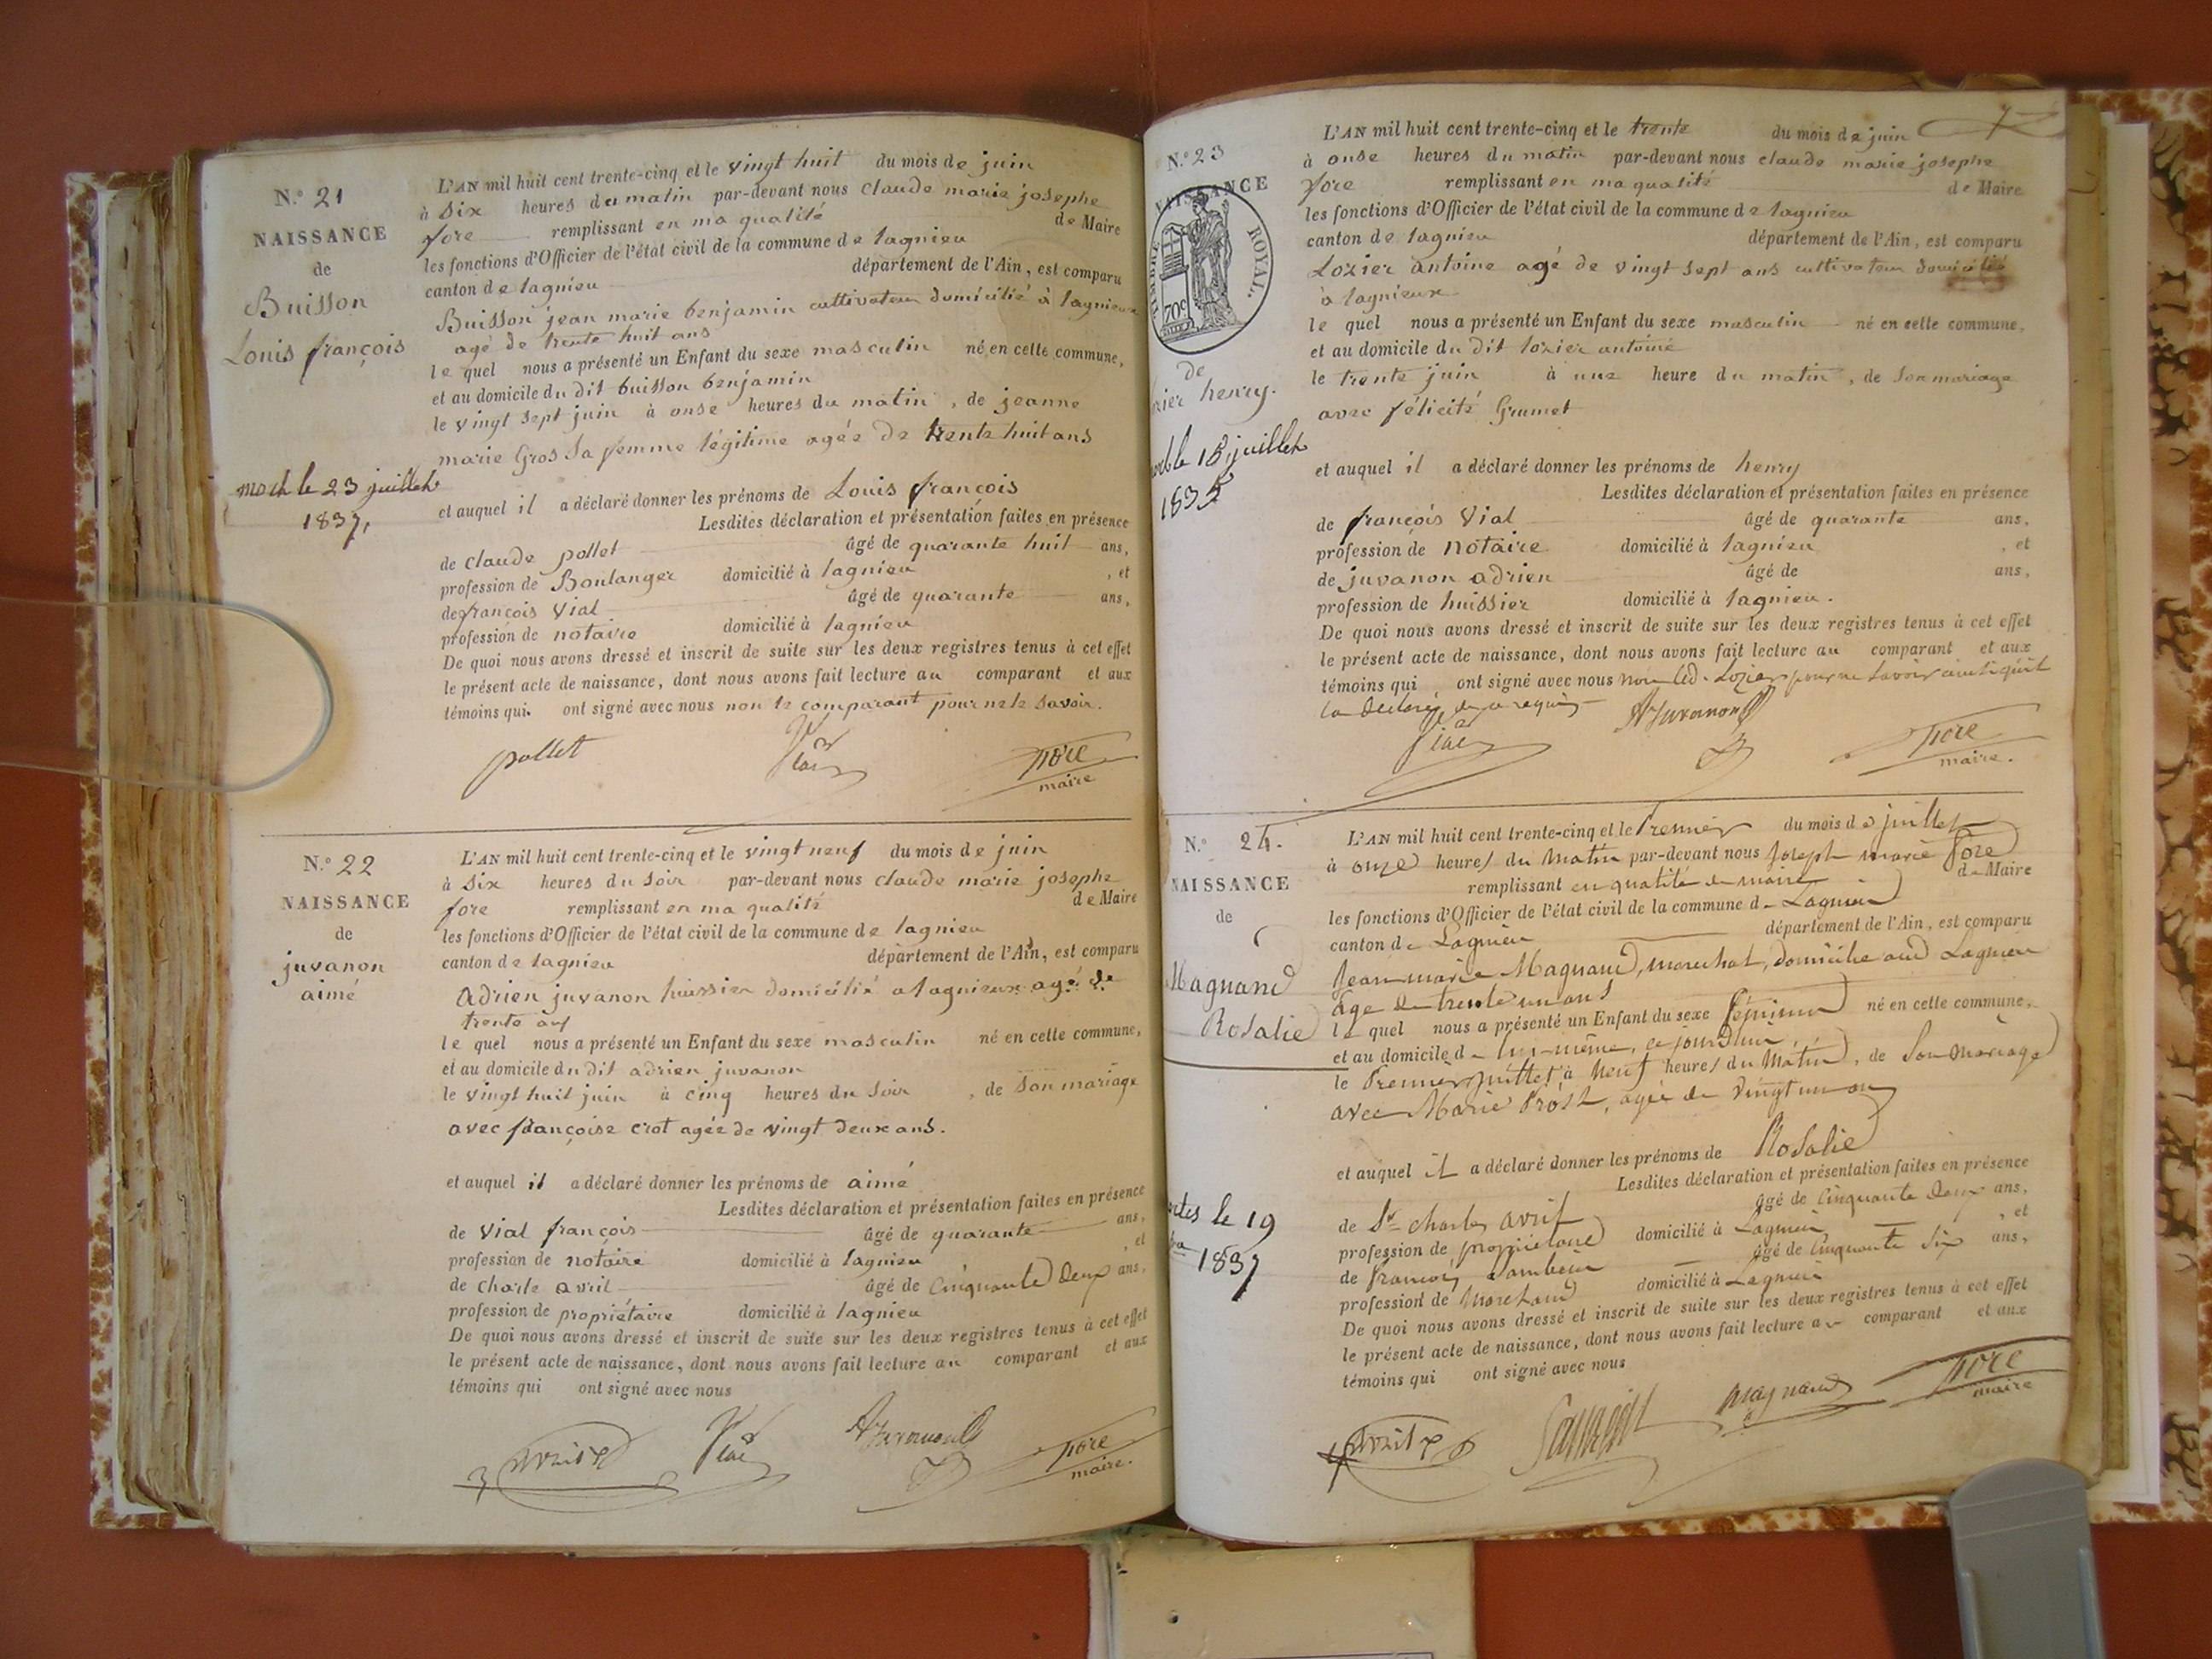 N.° 21
NAISSANCE
de
Buisson
Louis françois
mort le 23 juillet
1837,
L'AN mil huit cent trente-cinq et le vingt huit du mois de juin
à six heures du matin par-devant nous claude marie josephe
fore remplissant en ma qualité de Maire
les fonctions d'Officier de l'état civil de la commune de lagnieu
canton de lagnieu département de l'Ain, est comparu
Buisson jean marie benjamin cultivateur domicilié à lagnieux
agé de trente huit ans
le quel nous a présenté un Enfant du sexe masculin né en cette commune,
et au domicile du dit buisson benjamin
le vingt sept juin à onse heures du matin, de jeanne
marie Gros sa femme légitime agée de trente huit ans
et auquel il a déclaré donner les prénoms de Louis françois
Lesdites déclaration et présentation faites en présence
de claude pollet âgé de quarante huit ans,
profession de Boulanger domicilié à lagnieu, et
de françois Vial âgé de quarante ans,
profession de notaire domicilié à lagnieu
De quoi nous avons dressé et inscrit de suite sur les deux registres tenus à cet effet
le présent acte de naissance, dont nous avons fait lecture au comparant et aux
témoins qui ont signé avec nous non le comparant pour ne le savoir.
pollet Vial fore
maire
N.° 22
NAISSANCE
de
juvanon
aimé
L'AN mil huit cent trente-cinq et le vingt neuf du mois de juin
à six heures du soir par-devant nous claude marie josephe
fore remplissant en ma qualité de Maire
les fonctions d'Officier de l'état civil de la commune de lagnieu
canton de lagnieu département de l'Ain, est comparu
adrien juvanon huissier domicilié a lagnieux agé de
trente ans
le quel nous a présenté un Enfant du sexe masculin né en cette commune,
et au domicile du dit adrien juvanon
le vingt huit juin à cinq heures du soir, de son mariage
avec françoise crot agée de vingt deux ans.
et auquel il a déclaré donner les prénoms de aimé
Lesdites déclaration et présentation faites en présence
de Vial françois âgé de quarante ans,
profession de notaire domicilié à lagnieu, et
de charle avril âgé de Cinquante Deux ans,
profession de propriétaire domicilié à lagnieu
De quoi nous avons dressé et inscrit de suite sur les deux registres tenus à cet effet
le présent acte de naissance, dont nous avons fait lecture au comparant et aux
témoins qui ont signé avec nous
avril Vial AJuvanon fore
maire.
N.° 23
NAISSANCE
TIMBRE ROYAL.
70c
de
zier henry.
le 18 juillet
1835
L'AN mil huit cent trente-cinq et le trente du mois de juin
à onse heures du matin par-devant nous claude marie josephe
fore remplissant en ma qualité de Maire
les fonctions d'Officier de l'état civil de la commune de lagnieu
canton de lagnieu département de l'Ain, est comparu
Lozier antoine agé de vingt sept ans cultivateur domicilié
à lagnieux
le quel nous a présenté un Enfant du sexe masculin né en cette commune,
et au domicile du dit lozier antoine
le trente juin à une heure du matin, de son mariage
avec félicité Grumet
et auquel il a déclaré donner les prénoms de henry
Lesdites déclaration et présentation faites en présence
de françois Vial âgé de quarante ans,
profession de notaire domicilié à lagnieu, et
de juvanon adrien âgé de ans,
profession de huissier domicilié à lagnieu.
De quoi nous avons dressé et inscrit de suite sur les deux registres tenus à cet effet
le présent acte de naissance, dont nous avons fait lecture au comparant et aux
témoins qui ont signé avec nous non led. Lozier pour ne savoir ainsi qu'il
la déclaré de ce requis
Vial AJuvanon fore
maire.
N.° 24.
NAISSANCE
de
Magnand
Rosalie
le 19
1837
L'AN mil huit cent trente-cinq et le Premier du mois de juillet
à onze heures du Matin par-devant nous Joseph marie fore
remplissant en qualité de maire de Maire
les fonctions d'Officier de l'état civil de la commune de Lagnieu
canton de Lagnieu département de l'Ain, est comparu
Jean marie Magnand, marechal, domicilié aud Lagnieu
âgé de trente un ans
le quel nous a présenté un Enfant du sexe féminin né en cette commune,
et au domicile de lui-même, ce jourd'hui,
le Premier juillet à Neuf heures du Matin, de Son Mariage
avec Marie Prost, agée de Vingt un ans
et auquel il a déclaré donner les prénoms de Rosalie
Lesdites déclaration et présentation faites en présence
de Sr charles avril âgé de Cinquante Deux ans,
profession de propriétaire domicilié à Lagnieu, et
de françois âgé de Cinquante Six ans,
profession de Marchand domicilié à Lagnieu
De quoi nous avons dressé et inscrit de suite sur les deux registres tenus à cet effet
le présent acte de naissance, dont nous avons fait lecture au comparant et aux
témoins qui ont signé avec nous
avril magnand fore
maire